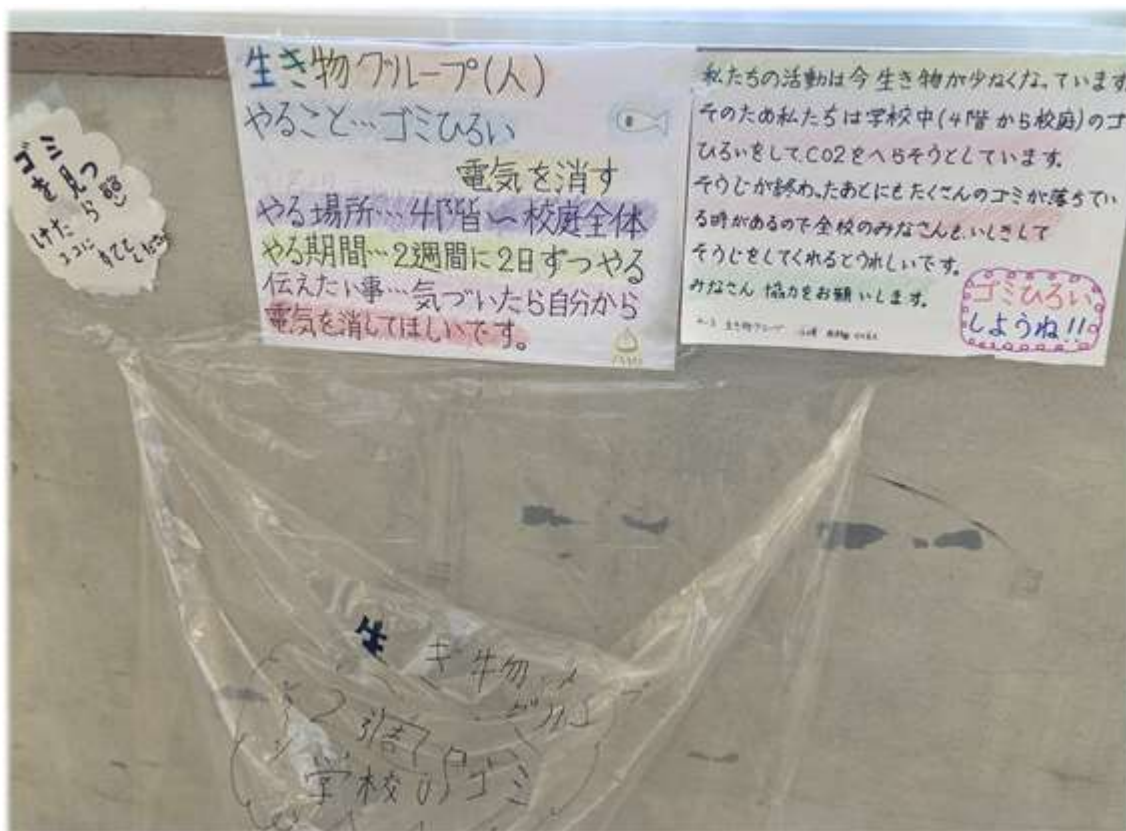 ゴミを見つ
けたら
ココに
すててください
生き物グループ(人)
やること…ゴミひろい
電気を消す
やる場所…4階〜校庭全体
やる期間…2週間に2日ずつやる
伝えたい事…気づいたら自分から
電気を消してほしいです。
私たちの活動は今生き物が少なくなっています
そのため私たちは学校中(4階から校庭)のゴ
ひろいをしてCO2をへらそうとしています。
そうじが終わったあとにもたくさんのゴミが落ちてい
る時があるので全校のみなさんもいしきして
そうじをしてくれるとうれしいです。
みなさん 協力をお願いします。
生き物グループ
ゴミひろい
しようね!!
生き物
グループ
2週
学校のゴミ